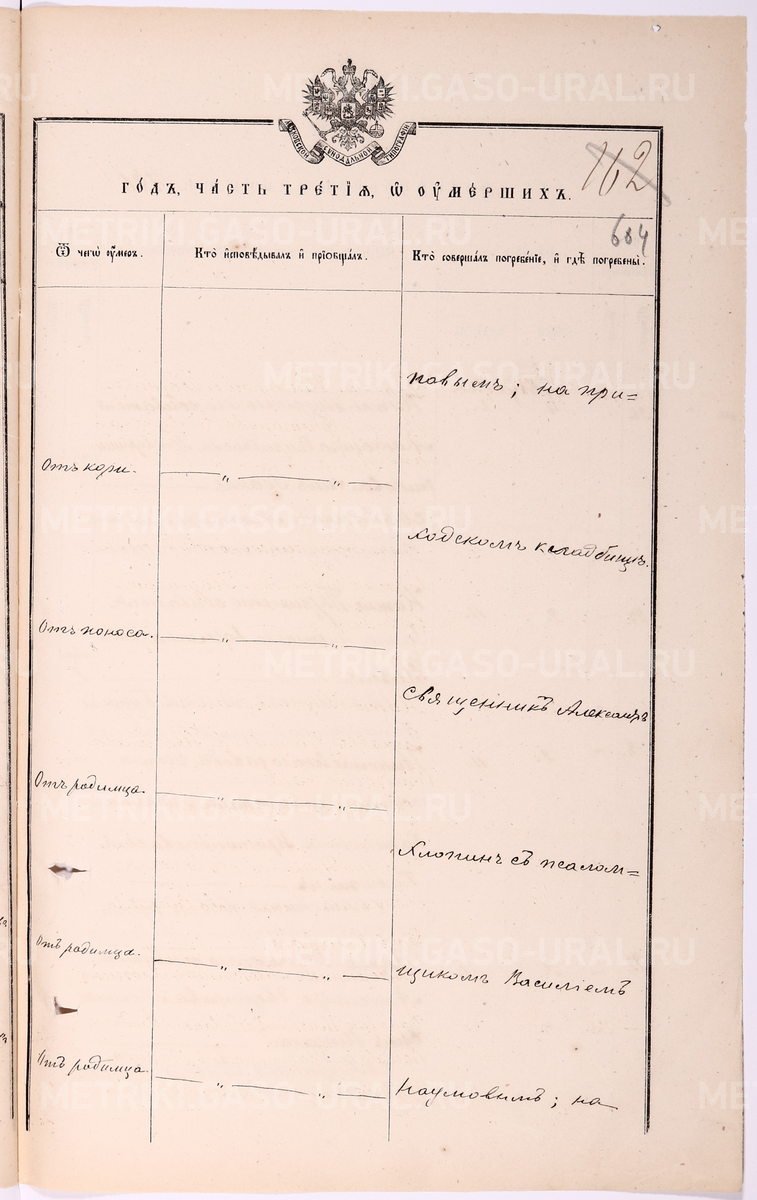 МОСКОВСКОЙ СѴНОДАЛЬНОЙ ТИПОГРАФІИ
162
ГОДЪ, ЧАСТЬ ТРЕТІѦ, Ѿ ОУМЕРШИХЪ.
684
Ѿ чегѡ оумеръ.
Кто исповѣдывалъ и прїобщалъ.
Кто совершалъ погребенїе, и гдѣ погребены.
повымъ; на при=
Отъ кори. — „ — „ —
ходскомъ кладбищѣ.
Отъ поноса. — „ — „ —
Священникъ Александръ
Отъ родимца. — „ — „ —
Хлопинъ съ псалом=
Отъ родимца. — „ — „ —
щикомъ Василіемъ
Отъ родимца. — „ — „ —
Наумовымъ; на
METRIKI.GASO-URAL.RU